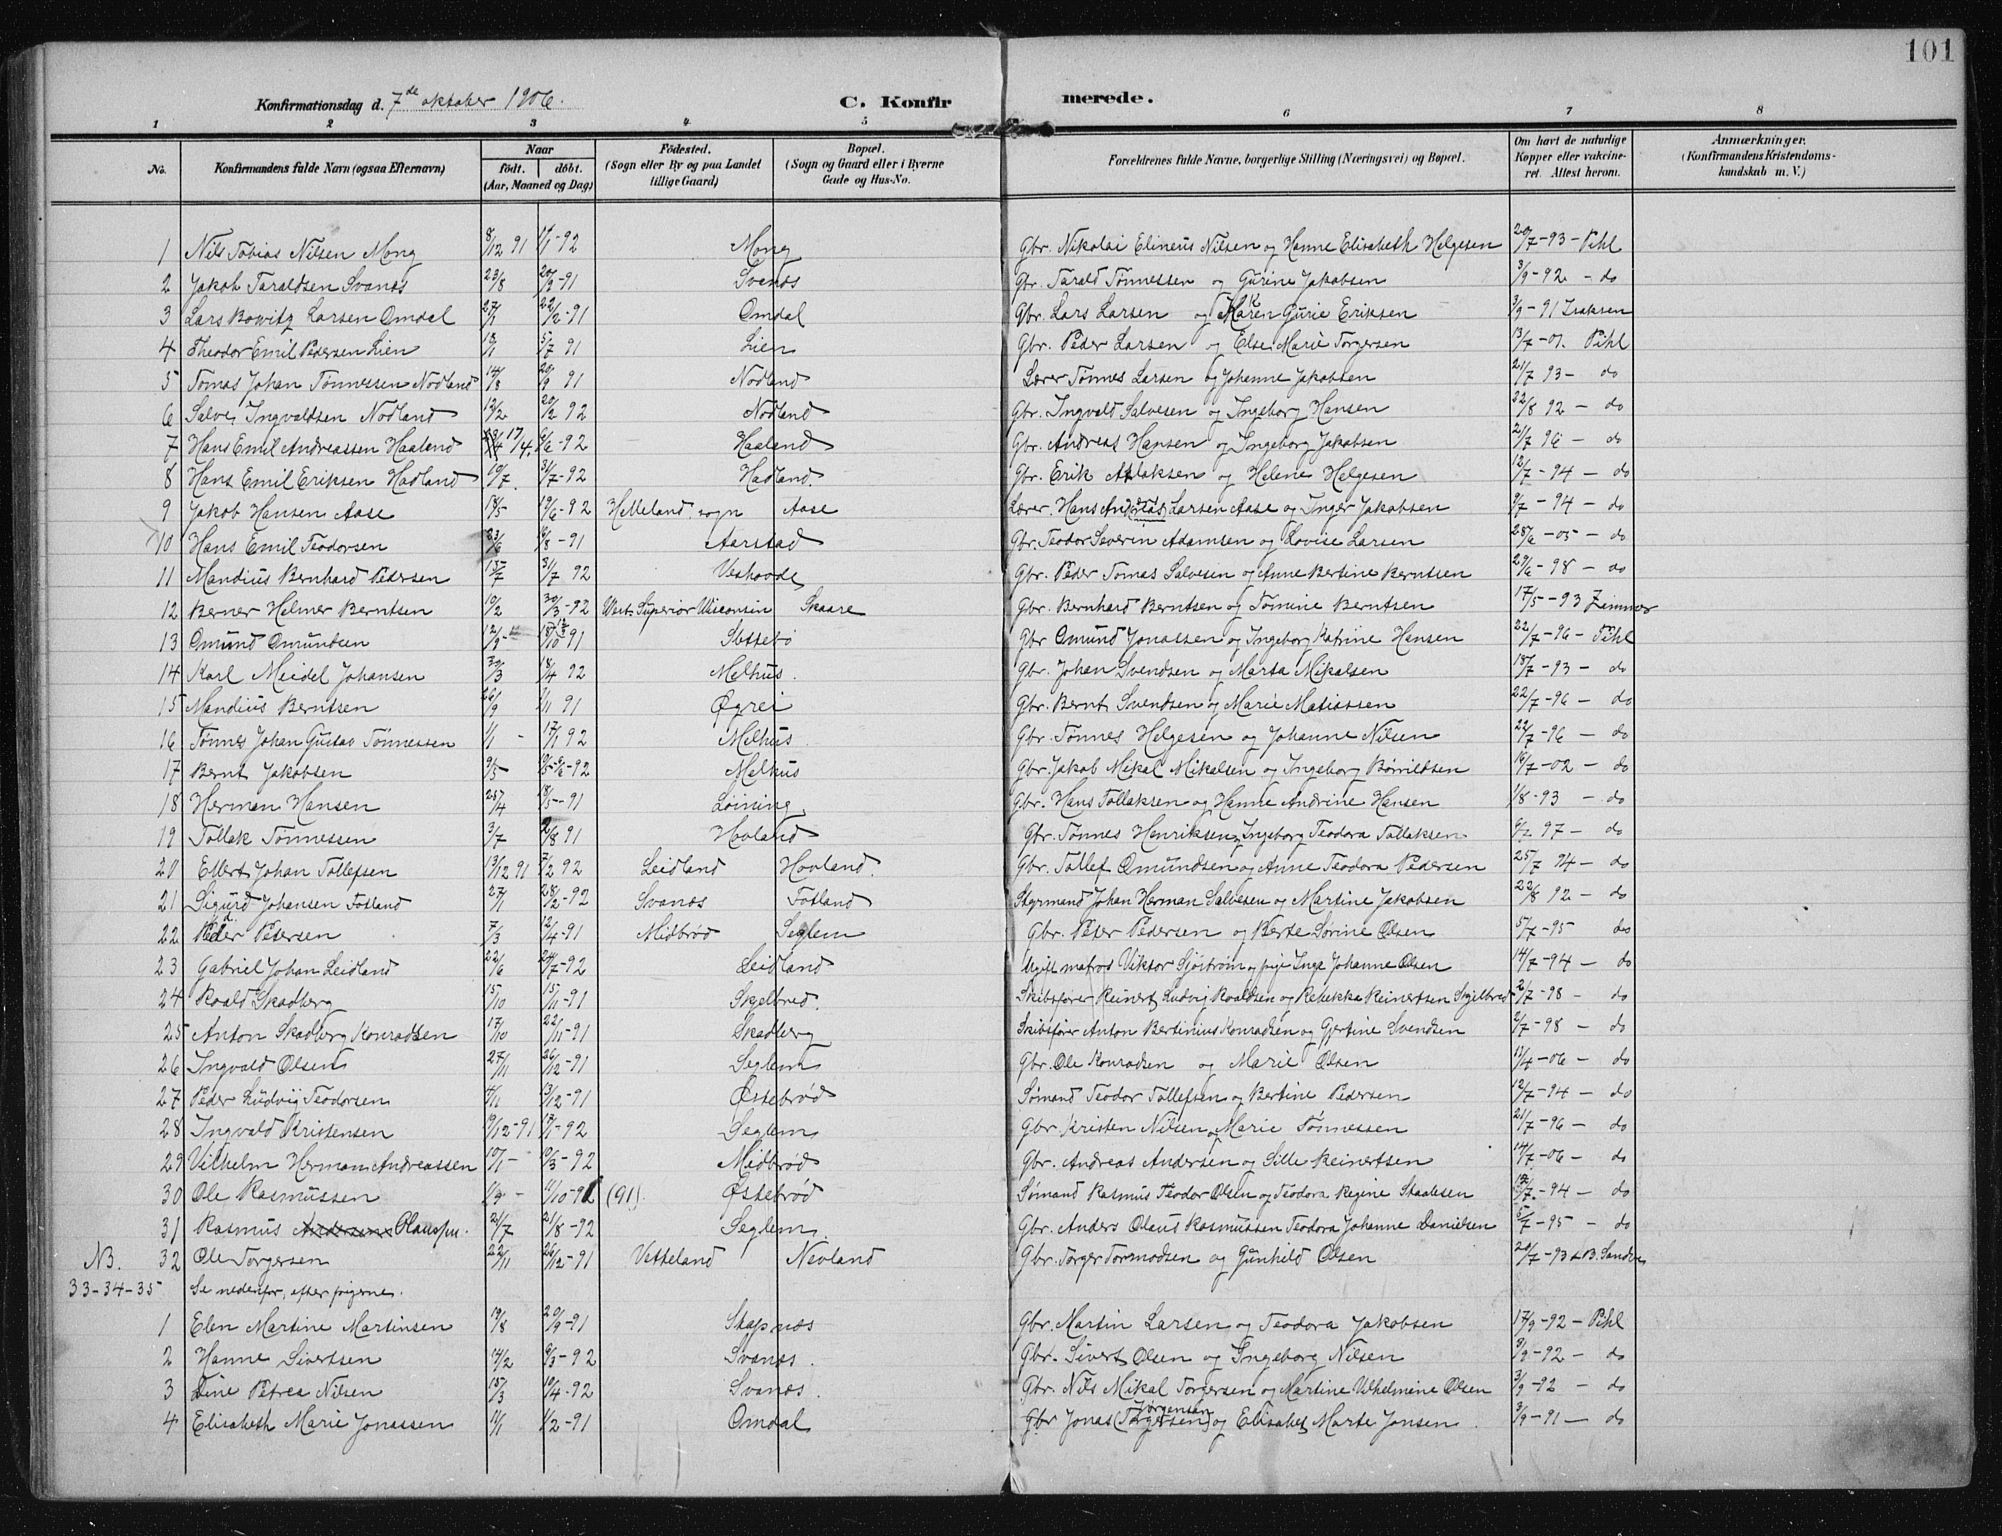 101
Konfirmationsdag d. 7de oktober 1906. C. Konfir merede.
1 2 3 4 5 6 7 8
No. Konfirmandens fulde Navn (ogsaa Efternavn) Naar født. døbt. (Aar, Maaned og Dag) Fødested. (Sogn eller By og paa Landet tillige Gaard) Bopæl. (Sogn og Gaard eller i Byerne Gade og Hus-No. Forældrenes fulde Navne, borgerlige Stilling (Næringsvei) og Bopæl. Om havt de naturlige Kopper eller vakcineret. Attest herom. Anmærkninger. (Konfirmandens Kristendomskundskab m. V.)
1 Nils Tobias Nilsen Mong 8/12 91 1/1-92 Mong Gbr. Nikolai Elineus Nilsen og Hanne Elisabeth Helgesen 20/7-93- Pihl
2 Jakob Taraldsen Svanes 23/8 20/9-91 Svanes Gbr. Tarald Tønnessen og Gurine Jakobsen 3/9-92- do
3 Lars Bowitz Larsen Omdal 27/1 22/2-91 Omdal Gbr. Lars Larsen og Maren Gurie Eriksen 3/9-91 Isaksen
4 Theodor Emil Pedersen Lien 5/7 91 Lien Gbr. Peder Larsen og Else Marie Torgersen 13/7-01. Pihl
5 Tomas Johan Tønnessen Nodland 14/8 20/9 91 Nodland Lærer Tønnes Larsen og Johanne Jakobsen 21/7 93- do
6 Salve Ingvaldsen Nodland 12/2 20/2 92 Nodland Gbr. Ingvald Salvesen og Ingeborg Hansen 22/8 92- do
7 Hans Emil Andreassen Haaland 17/4. 6/6-92 Haaland Gbr. Andreas Hansen og Ingeborg Jakobsen 21/7 96- do
8 Hans Emil Eriksen Hadland 10/7. 31/7-92 Hadland. Gbr. Erik Atlaksen og Helene Helgesen 12/7-94- do
9 Jakob Hansen Aase 18/5 19/6-92 Helleland sogn Aase Lærer. Hans Andreas Larsen Aase og Inger Jakobsen 9/7-94- do
10 Hans Emil Teodorsen 23/6 9/8-91 Aarstad Gbr. Teodor Severin Adamsen og Lovise Larsen 28/6-05- do
11 Mandius Bernhard Pedersen 13/7 31/7 92 Veshovde Gbr. Peder Tomas Salvesen og Anne Bertine Berntsen 29/6-98- do
12 Berner Helmer Berntsen 10/2 30/3-92 West Superior Wisconsin Skaare Gbr. Bernhard Berntsen og Tomine Berntsen 17/5-93 Zimmer
13 Omund Omundsen 12/9 18/10 91 Settebø Gbr Omund Jonassen og Ingeborg Katrine Hansen 22/7-96- Pihl
14 Karl Meidel Johansen 30/3 18/4 92 Melhus. Gbr. Johan Svendsen og Marta Mikalsen 18/7-93- do
15 Mandius Berntsen 26/9 1/11 91 Øgrei Gbr. Bernt Svendsen og Marie Matiassen 22/7-96- do
16 Tønnes Johan Gustav Tønnessen 1/1 - 17/1 92 Melhus. Gbr. Tønnes Helgesen og Johanne Nilsen 22/7-96- do
17 Bernt Jakobsen 9/5- -92 Melhus Gbr. Jakob Mikal Mikalsen og Ingeborg Børildsen 16/7-02- do
18 Herman Hansen 28/4 18/5-91 Løining Gbr. Hans Tollaksen og Hanne Andrine Hansen 1/8-93- do
19 Tollak Tønnessen 3/7 2/8 91 Hovland Gbr. Tønnes Henriksen og Ingeborg Teodora Tollaksen 9/7 97- do
20 Ellert Johan Tollefsen 13/12 91 7/2 92 Leidland Hovland. Gbr. Tollef Omundsen og Anne Teodora Pedersen 25/7 94- do
21 Sigurd Johansen Fotland 27/1 28/2-92 Svanes Fotland Styrmand Johan Herman Salvesen og Martine Jakobsen 22/8 92- do
22 Peder Pedersen 7/3 12/4-91 Midbrød Seglem Gbr. Peder Pedersen og Berte Sørine Olsen 5/7-95- do
23 Gabriel Johan Leidland 22/6 24/7-92 Leidland Ugift matros Viktor Sjøstrøm og pige Inga Johanne Olsen 14/7-94- do
24 Roald Skadberg 15/10 15/11-91 Skjelbred. Skibsfører Reinert Ludvig Roaldsen og Rebekka Reinertsen Skjelbred 2/7-98- do
25 Anton Skadberg Konradsen 17/10 22/11-91 Skadberg Skibsfører Anton Bertinius Konradsen og Gjertine Svendsen 2/7-98- do
26 Ingvald Olsen 27/11 26/12-91 Seglem Gbr. Ole Konradsen og Marie Olsen 13/4-06- do
27 Peder Ludvig Teodorsen 4/11 13/12-91 Østebrød Sømand Teodor Tollefsen og Bertine Pedersen 12/7-94- do
28 Ingvald Kristensen 9/12-91 17/1-92 Seglem Gbr. Kristen Nilsen og Marie Tønnessen 21/7-96- do
29 Vilhelm Herman Andreassen 10/1- 10/3-92 Midbrød Gbr. Andreas Andersen og Sille Reinertsen 14/7-06- do
30 Ole Rasmussen - 11/10-92 (91). Østebrød Sømand Rasmus Teodor Olsen og Teodora Regine Staalesen 12/7-94- do
31 Rasmus Andersen Olaussen. 24/7 21/8-92 Seglem. Gbr. Anders Olaus Rasmussen Teodora Johanne Danielsen 5/7-95- do
NB. 32 Ole Torgersen 22/11 26/12-91 Vetteland Nevland Gbr. Torger Tormodsen og Gunhild Olsen 20/7-93
33-34-35 Se nedenfor, efter pigerne.
1 Elen Martine Martinsen 19/8 20/9-91 Skapnæs Gbr. Martin Larsen og Teodora Jakobsen 17/9-92- Pihl
2 Hanne Sivertsen 14/2 6/3-92 Svanes. Gbr. Sivert Olsen og Ingeborg Nilsen 3/9-92- do
3 Dine Petrea Nilsen 15/3 10/4-92 Svanes. Gbr. Nils Mikal Torgersen og Martine Vilhelmine Olsen 3/9-92 - do
4 Elisabeth Marie Jonassen 11/1 1/2-91 Omdal Gbr Jonas (Torgersen) Jørgensen og Elisabet Marte Jonsen 3/9-91- do